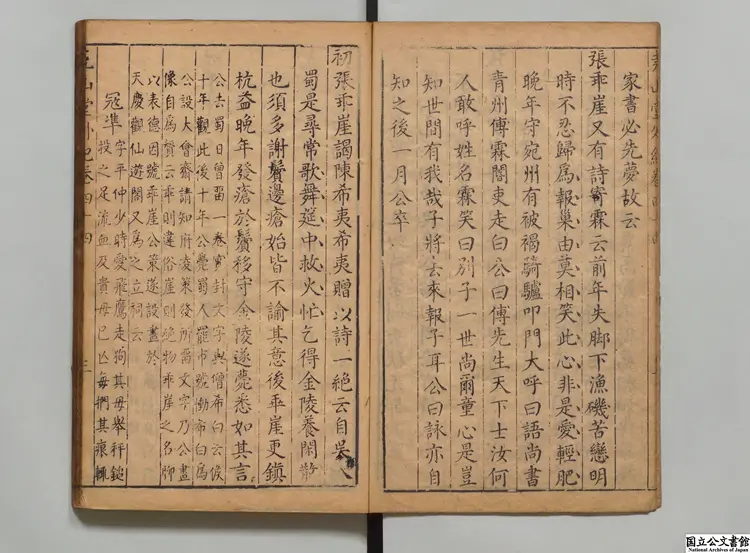 家書必先夢故云
張乖崖又有詩寄霖云前年失脚下漁磯苦戀明
時不忍歸爲報巢由莫相笑此心非是愛輕肥
晚年守宛州有被褐騎驢叩門大呼曰語尚書
青州傅霖閽吏走白公曰傅先生天下士汝何
人敢呼姓名霖笑曰別子一世尚爾童心是豈
知世間有我哉子將去來報子耳公曰詠亦自
知之後一月公卒
初張乖崖謁陳希夷希夷贈以詩一絶云自吳入
蜀是尋常歌舞筵中救火忙乞得金陵養閑散
也須多謝鬢邊瘡始皆不諭其意後乖崖更鎮
杭益晚年發瘡於鬢移守金陵遂薨悉如其言
公去蜀日曾留一卷實封文字與僧希白云候
十年觀此後十年公薨蜀人罷市號慟希白爲
公設大會齋請知府凌策發所留文字乃公畫
像自爲贊云乖則違俗崖則絶物乖崖之名聊
以表德因號乖崖公策遂設畫於
天慶觀仙遊閣又爲之立祠云
寇準
字平仲少時愛飛鷹走狗其母舉秤鎚
投之足流血及貴母已亡每捫其痕輒
堯山堂外紀卷四十四
三
国立公文書館
National Archives of Japan